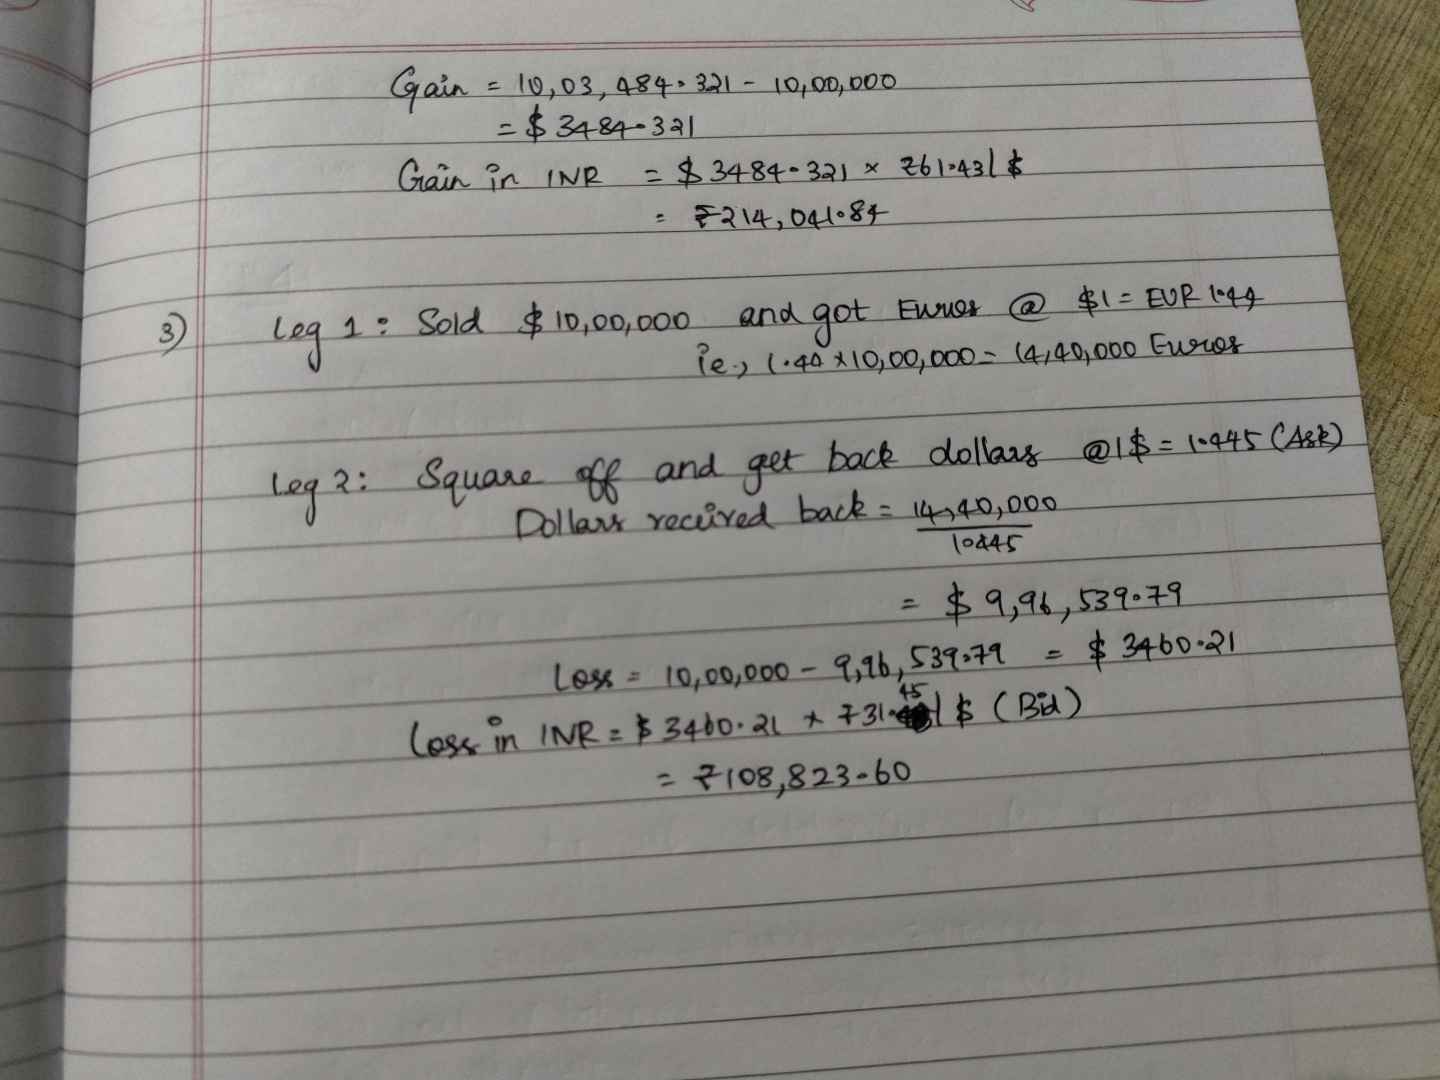 Gain = 10,03,484.321 - 10,00,000
= $ 3484.321
Gain in INR = $ 3484.321 x ₹61.43/$
= ₹214,041.84
3) Leg 1: Sold $10,00,000 and got Euros @ $1 = EUR 1.44
ie., 1.44 x 10,00,000 = 14,40,000 Euros
Leg 2: Square off and get back dollars @1$ = 1.445 (Ask)
Dollars received back = 14,40,000
1.445
= $ 9,96,539.79
Loss = 10,00,000 - 9,96,539.79 = $ 3460.21
Loss in INR = $ 3460.21 x ₹31.45/$ (Bid)
= ₹108,823.60